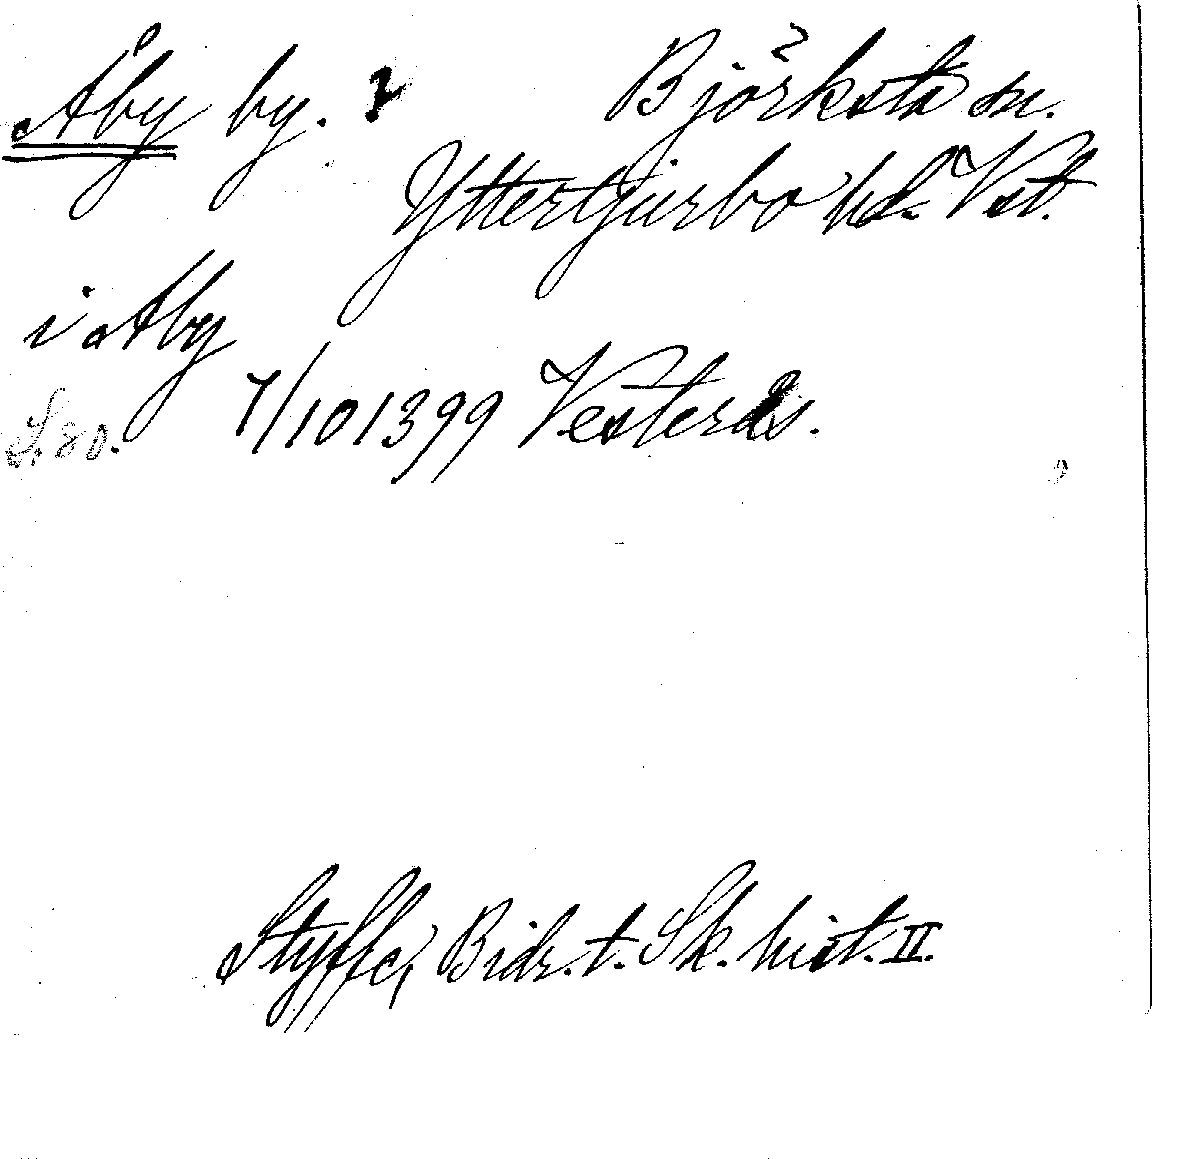 Åby by. Björksta sn.
Yttertjurbo hd. Vstm.
i Aby
S. 80. 7/10 1399 Vesterås.
Styffe, Bidr. t. Sk. hist. II.